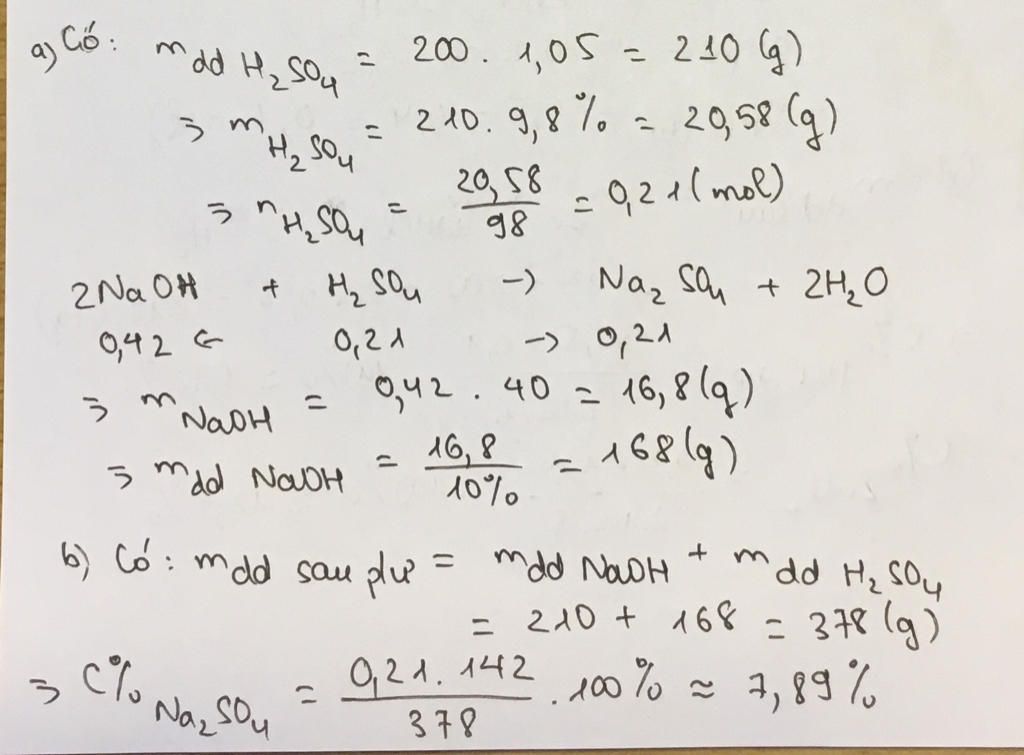 a) Có: m dd H₂SO₄ = 200 . 1,05 = 210 (g)
⇒ m H₂SO₄ = 210 . 9,8 % = 20,58 (g)
⇒ n H₂SO₄ = 20,58 / 98 = 0,21 (mol)
2NaOH + H₂SO₄ → Na₂SO₄ + 2H₂O
0,42 ← 0,21 → 0,21
⇒ m NaOH = 0,42 . 40 = 16,8 (g)
⇒ m dd NaOH = 16,8 / 10% = 168 (g)
b) Có: m dd sau pư = m dd NaOH + m dd H₂SO₄
= 210 + 168 = 378 (g)
⇒ C% Na₂SO₄ = 0,21 . 142 / 378 . 100 % ≈ 7,89 %